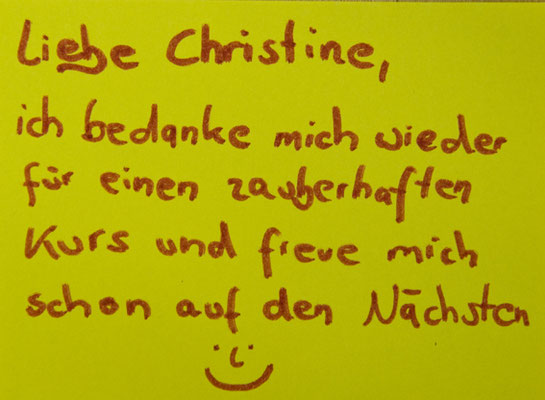 Liebe Christine,
ich bedanke mich wieder
für einen zauberhaften
Kurs und freue mich
schon auf den Nächsten